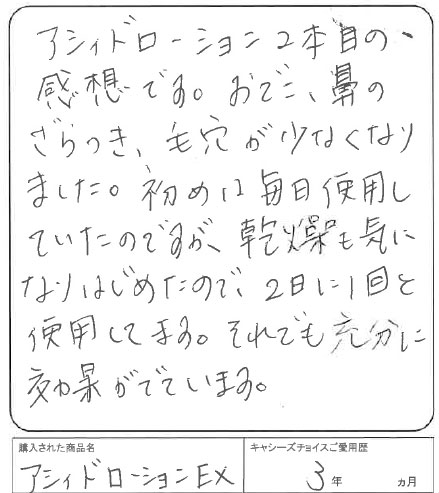 アシィドローション2本目の、
感想です。おでこ、鼻の
ざらつき、毛穴が少なくなり
ました。初めは毎日使用し
ていたのですが、乾燥も気に
なりはじめたので、2日に1回と
使用してます。それでも充分に
効果がでています。
購入された商品名
キャシーズチョイスご愛用歴
アシィドローションEX
3年 ヵ月